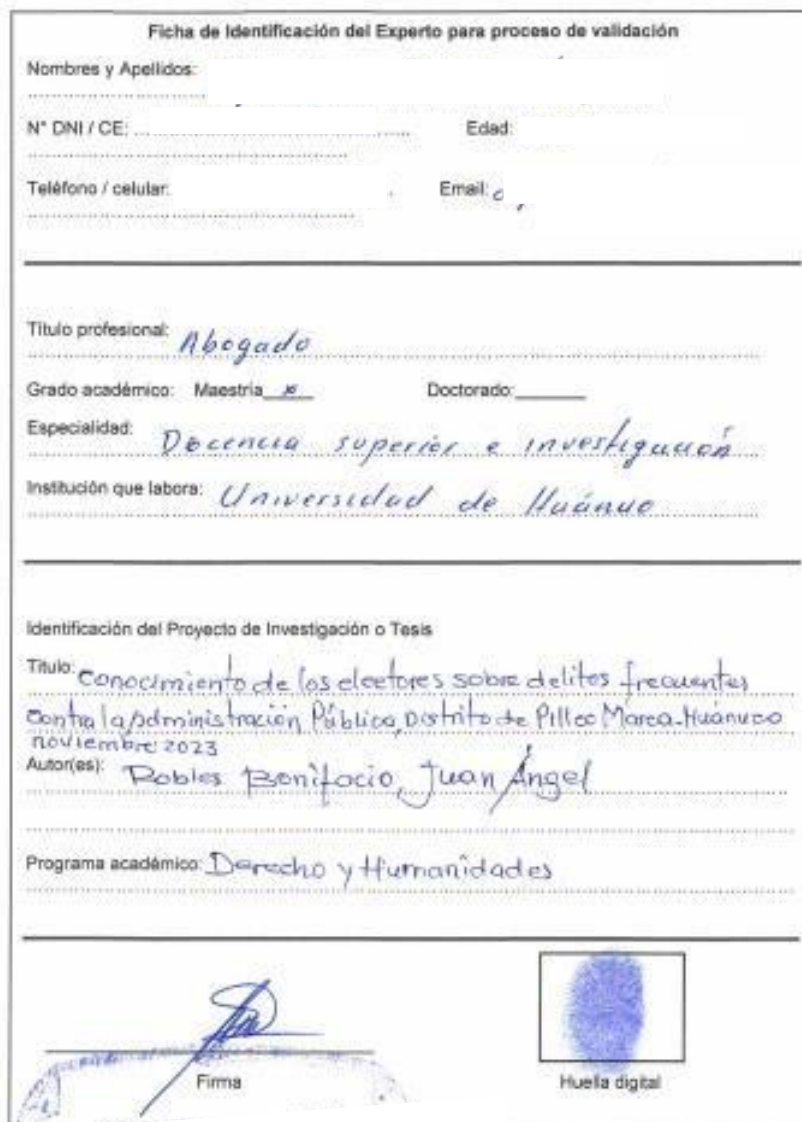 Ficha de Identificación del Experto para proceso de validación
Nombres y Apellidos:
N° DNI / CE: Edad:
Teléfono / celular: Email:
Título profesional: Abogado
Grado académico: Maestría x Doctorado:
Especialidad: Docencia superior e investigación
Institución que labora: Universidad de Huánuco
Identificación del Proyecto de Investigación o Tesis
Título: Conocimiento de los electores sobre delitos frecuentes
contra la Administración Pública, Distrito de Pillco Marca-Huánuco
noviembre 2023
Autor(es): Robles Bonifacio, Juan Ángel
Programa académico: Derecho y Humanidades
Firma Huella digital